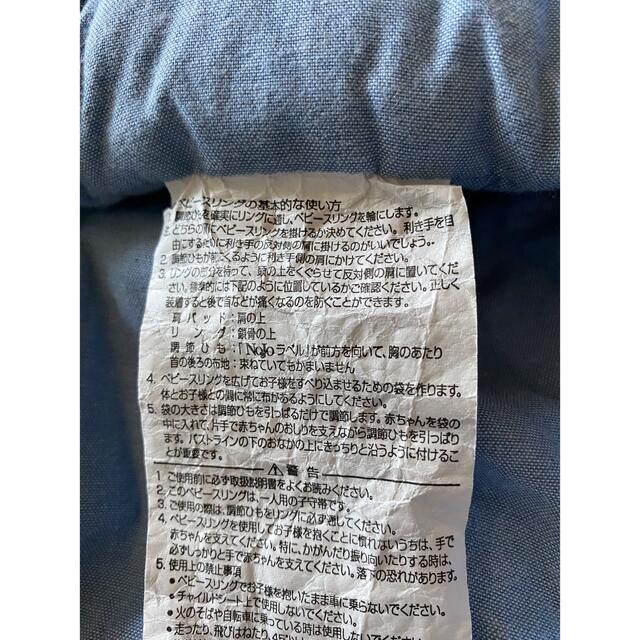 ベビースリングの基本的な使い方
調節ひもを確実にリングに通し、ベビースリングを輪にします。
どちらの肩にベビースリングを掛けるか決めてください。利き手を自
由にするために利き手の反対側の肩に掛けるのがいいでしょう。
2. 調節ひもが前にくるように利き手側の肩にかけてください。
3. リングの部分を持って、頭の上をくぐらせて反対側の肩に置いてくだ
さい。標準的には下記のように位置しているかご確認ください。正しく
装着すると後で首などが痛くなるのを防ぐことができます。
肩パッド:肩の上
リング:鎖骨の上
調節ひも:「NoJoラベル」が前方を向いて、胸のあたり
首の後ろの布地:束ねていてもかまいません
4. ベビースリングを広げてお子様をすべり込ませるための袋を作ります。
体とお子様との間に常に布があるようにしてください。
5. 袋の大きさは調節ひもを引っぱるだけで調節します。赤ちゃんを袋の
中に入れて、片手で赤ちゃんのおしりを支えながら調節ひもを引っぱり
ます。バストラインの下のおなかの上にきっちりと沿うように付けるこ
とが重要です。
⚠警告
1. ご使用前に必ず取扱説明書をよくお読みください。
2. このベビースリングは、一人用の子守帯です。
3. ご使用の際は、調節ひもをリングに必ず通してください。
4. ベビースリングを使用してお子様を抱くことに慣れないうちは、手で
赤ちゃんを支えてください。特に、かがんだり振り向いたりする時は、
必ずしっかりと手で赤ちゃんを支えてください。落下の恐れがあります。
5. 使用上の禁止事項
•ベビースリングでお子様を抱いたまま車に乗らないでください。
•チャイルドシート上で使用しないでください。
•火のそばや自転車に乗っている時は使用しないでください。
•走ったり、飛びはねたり、